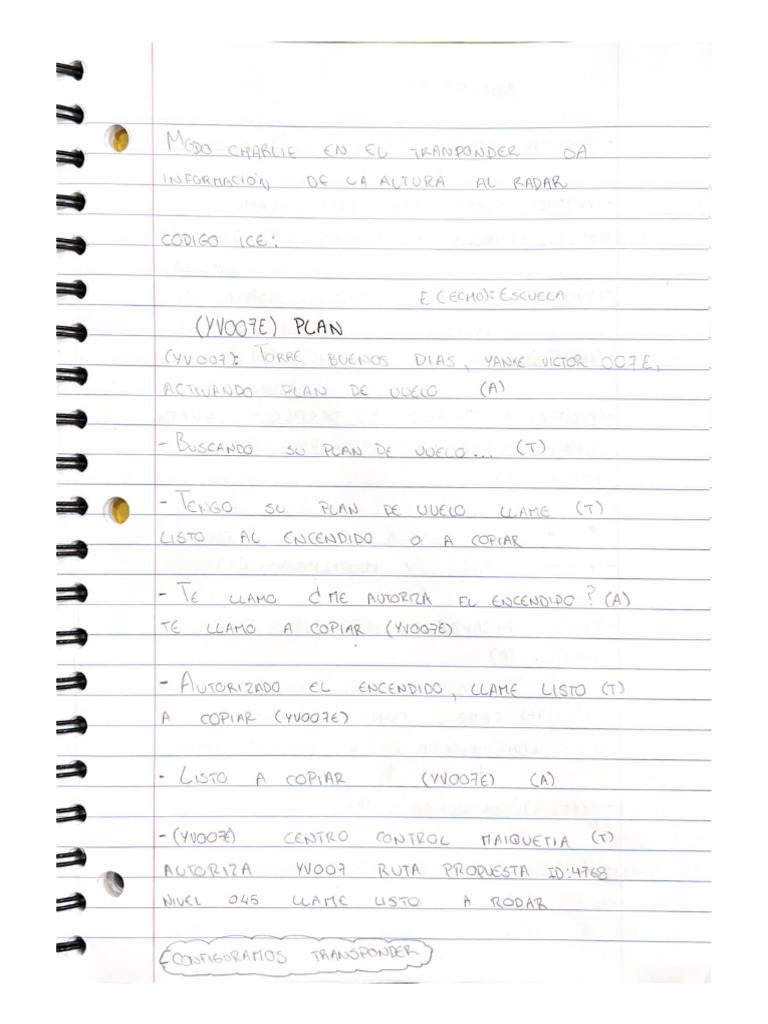 MODO CHARLIE EN EL TRANPONDER DA
INFORMACIÓN DE LA ALTURA AL RADAR
CODIGO ICE:
E (ECHO)= ESCUELA
(YV007E) PLAN
(YV007): TORRE BUENOS DIAS, YANKE VICTOR 007E,
ACTIVANDO PLAN DE VUELO (A)
- BUSCANDO SU PLAN DE VUELO... (T)
- TENGO SU PLAN DE VUELO LLAME (T)
LISTO AL ENCENDIDO O A COPIAR
- TE LLAMO ¿ME AUTORIZA EL ENCENDIDO? (A)
TE LLAMO A COPIAR (YV007E)
- AUTORIZADO EL ENCENDIDO, LLAME LISTO (T)
A COPIAR (YV007E)
- LISTO A COPIAR (YV007E) (A)
- (YV007E) CENTRO CONTROL MAIQUETIA (T)
AUTORIZA YV007 RUTA PROPUESTA ID:4768
NIVEL 045 LLAME LISTO A RODAR
CONFIGORAMOS TRANSPONDER